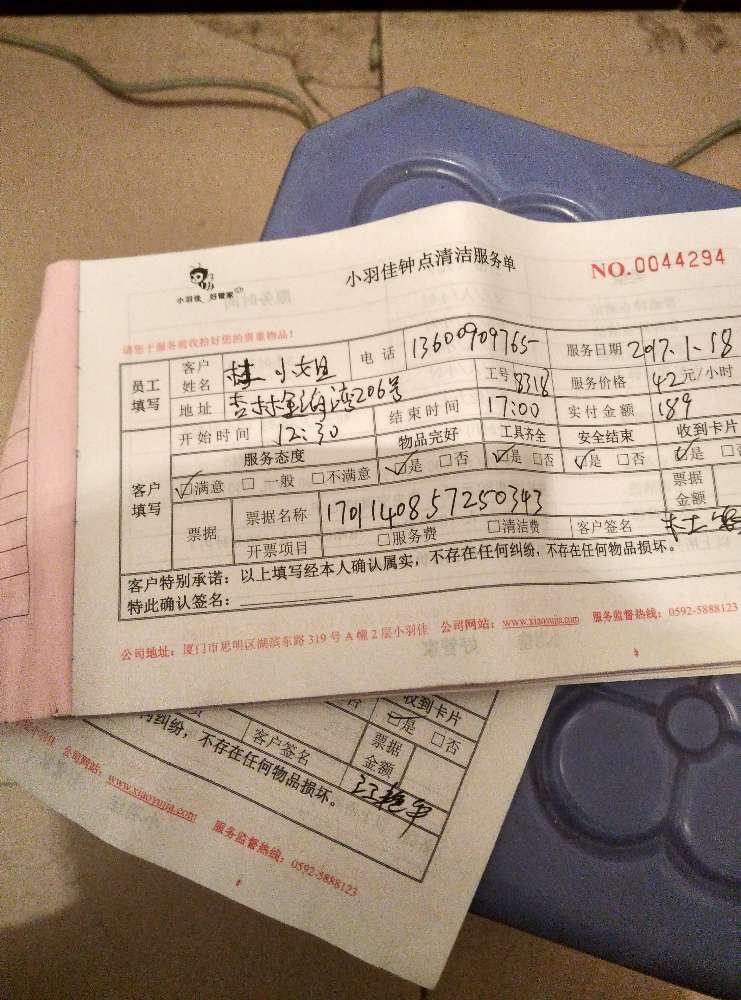 小羽佳 好管家
小羽佳钟点清洁服务单
NO.0044294
请您于服务前收拾好您的贵重物品!
员工填写 客户姓名 林小姐 电话 13600909765 服务日期 2017.1.18
地址 杏林 206号 工号 8318 服务价格 42元/小时
开始时间 12:30 结束时间 17:00 实付金额 189
客户填写 服务态度 物品完好 工具齐全 安全结束 收到卡片
☑满意 □一般 □不满意 ☑是 □否 ☑是 □否 ☑是 □否 ☑是
票据 票据名称 1701140857250343 票据金额
开票项目 □服务费 □清洁费 客户签名
客户特别承诺:以上填写经本人确认属实,不存在任何纠纷,不存在任何物品损坏。
特此确认签名:
公司地址:厦门市思明区湖滨东路319号A幢2层小羽佳 公司网站:www.xiaoyujia.com 服务监督热线:0592-5888123
收到卡片
是 □否
客户签名 票据金额
何纠纷,不存在任何物品损坏。
公司网站:www.xiaoyujia.com 服务监督热线:0592-5888123